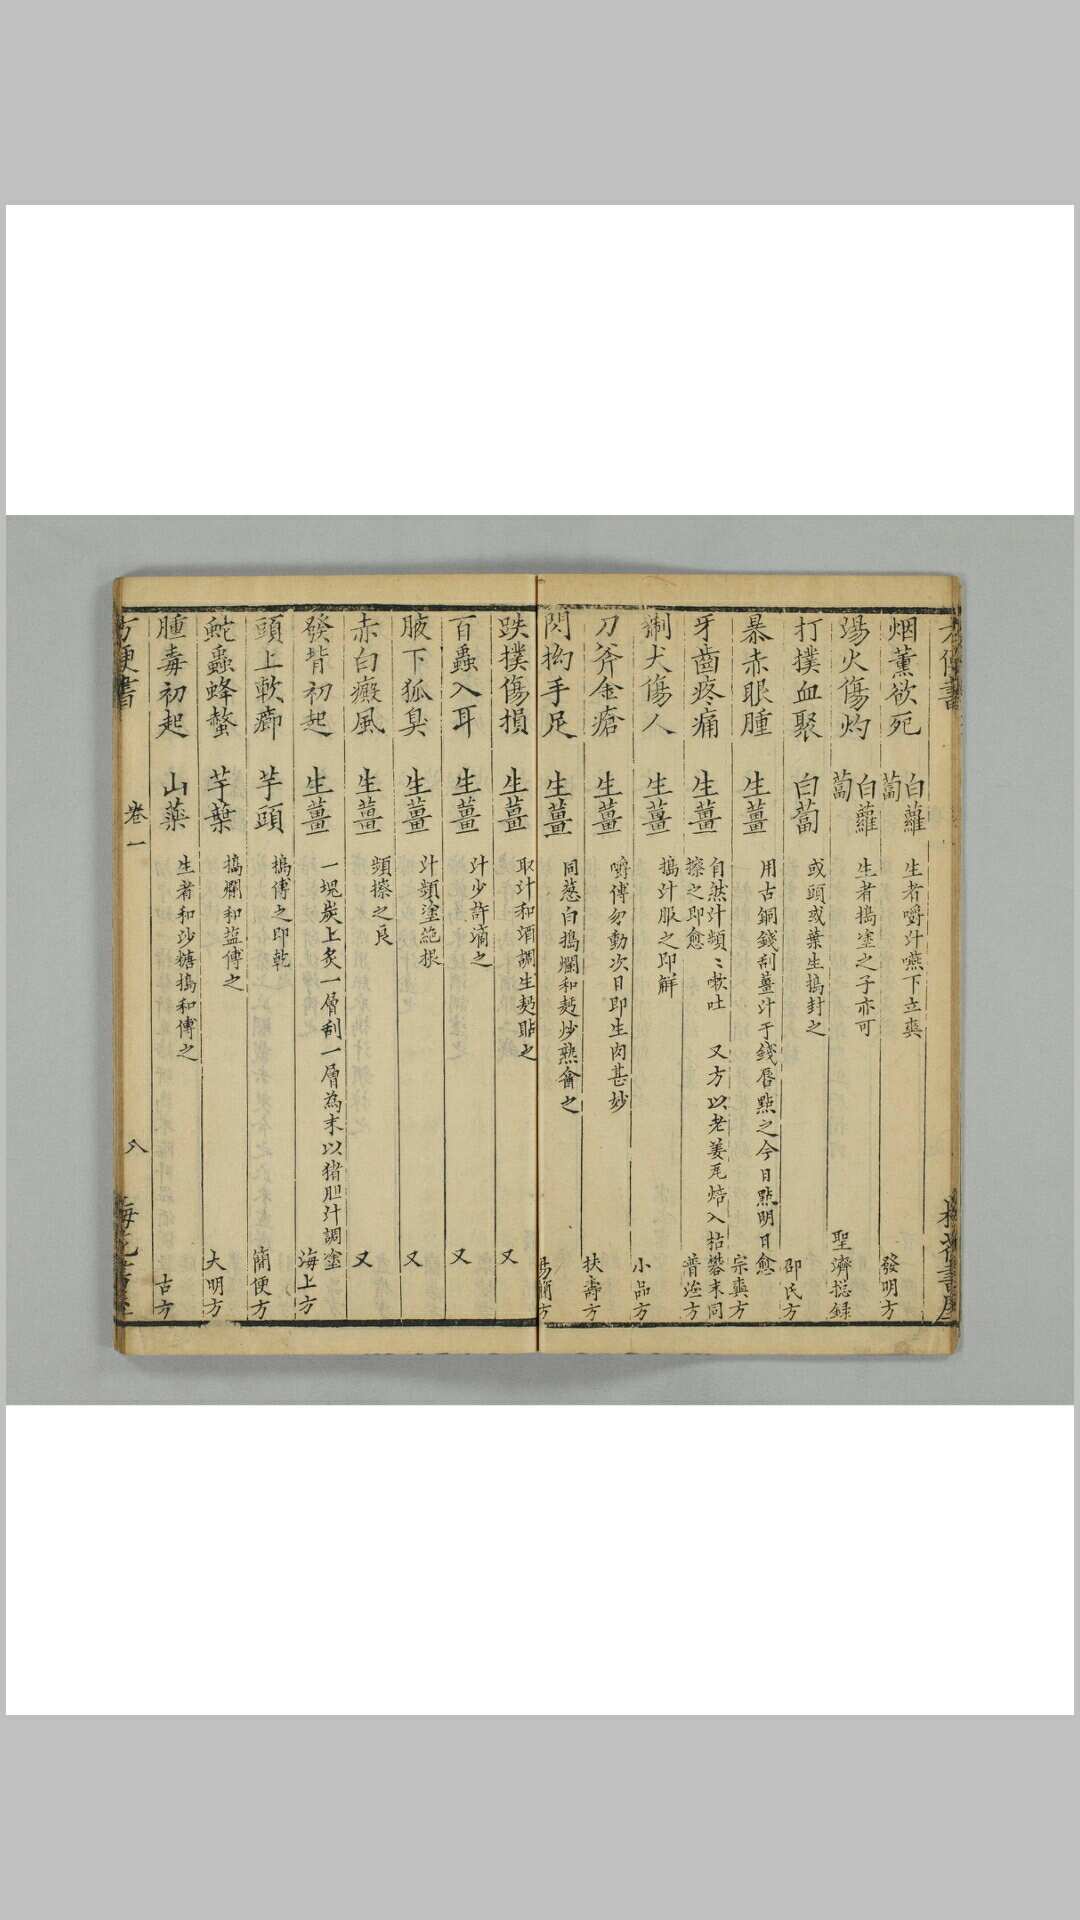 烟薰欲死 白蘿蔔 生者嚼汁嚥下立爽 發明方
湯火傷灼 白蘿蔔 生者搗塗之子亦可 聖濟捴録
打撲血聚 白蔔 或頭或葉生搗封之 邵氏方
暴赤眼腫 生薑 用古銅錢刮薑汁于錢唇點之今日點明日愈 宗奭方
牙齒疼痛 生薑 自然汁頻〻嗽吐 又方以老姜瓦焙入枯礬末同擦之即愈 普濟方
猘犬傷人 生薑 搗汁服之即解 小品方
刀斧金瘡 生薑 嚼傅勿動次日即生肉甚妙 扶壽方
閃抝手足 生薑 同葱白搗爛和麪炒熱罨之 易簡方
跌撲傷損 生薑 取汁和酒調生麪貼之 又
百蟲入耳 生薑 汁少許滴之 又
腋下狐臭 生薑 汁頻塗絶根 又
赤白癜風 生薑 頻擦之良 又
發背初起 生薑 一塊炭上炙一層刮一層為末以猪胆汁調塗 海上方
頭上軟癤 芋頭 搗傅之即乾 簡便方
蛇蟲蜂螫 芋葉 搗爛和盐傅之 大明方
腫毒初起 山藥 生者和沙糖搗和傅之 古方
方便書 卷一 八